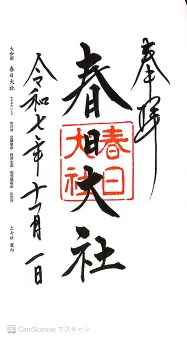 奉拝
春日大社
春日
大社
令和七年十一月一日
大和国 春日大社
CamScanner でスキャン